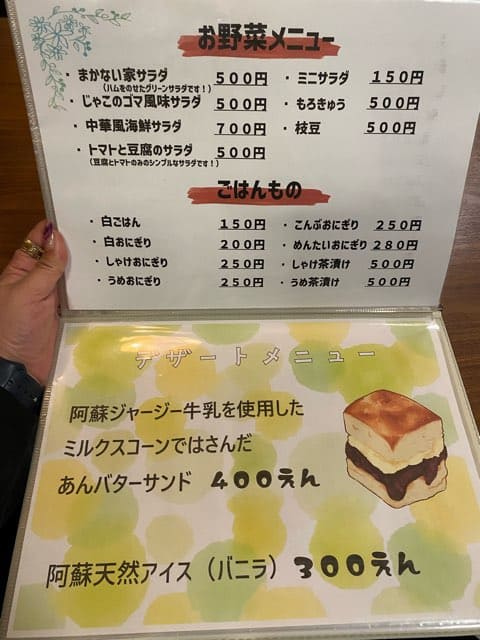 お野菜メニュー
・まかない家サラダ 500円 ・ミニサラダ 150円
(ハムをのせたグリーンサラダです!)
・じゃこのゴマ風味サラダ 500円 ・もろきゅう 500円
・中華風海鮮サラダ 700円 ・枝豆 500円
・トマトと豆腐のサラダ 500円
(豆腐とトマトのみのシンプルなサラダです!)
ごはんもの
・白ごはん 150円 ・こんぶおにぎり 250円
・白おにぎり 200円 ・めんたいおにぎり 280円
・しゃけおにぎり 250円 ・しゃけ茶漬け 500円
・うめおにぎり 250円 ・うめ茶漬け 500円
デザートメニュー
阿蘇ジャージー牛乳を使用した
ミルクスコーンではさんだ
あんバターサンド 400えん
阿蘇天然アイス(バニラ) 300えん